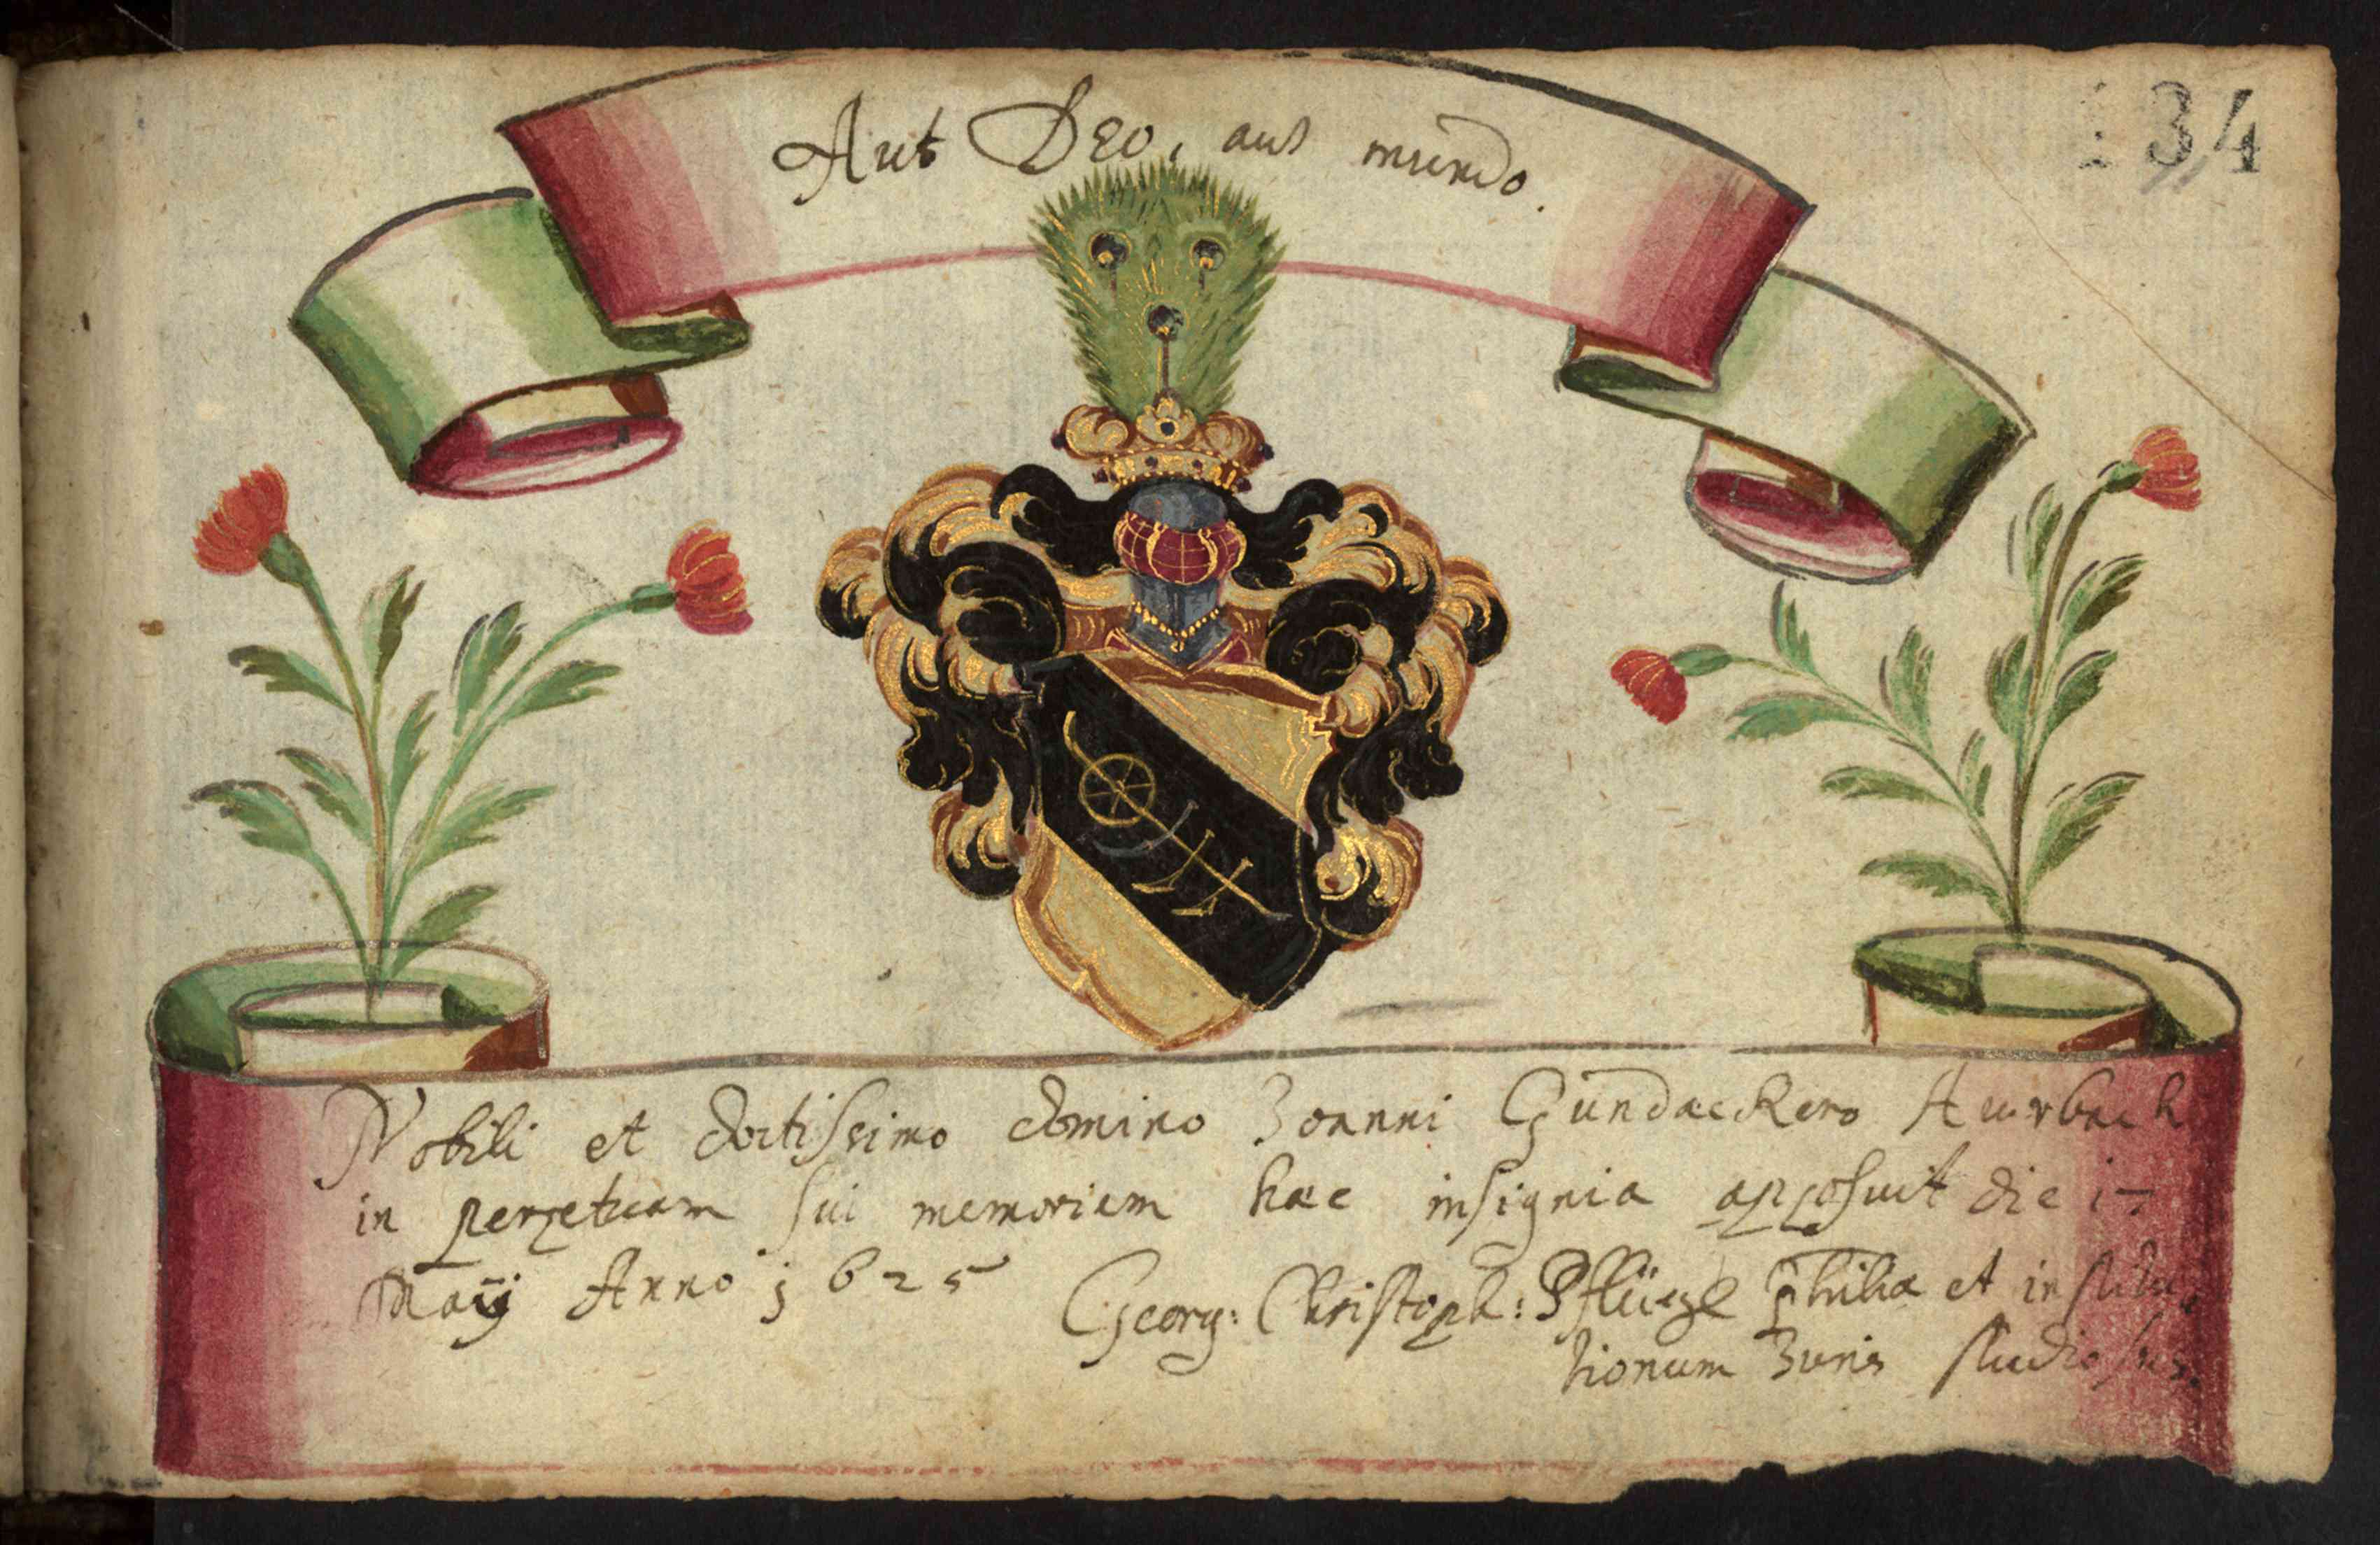 134
Aut Deo, aut mundo.
Nobili et doctissimo domino Joanni Gundackero Aurbach
in perpetuam sui memoriam haec insignia apposuit die 17
Maÿ Anno 1625 Georg: Christoph: Pflüegl philiæ et institu
tionum Juris studiosus.